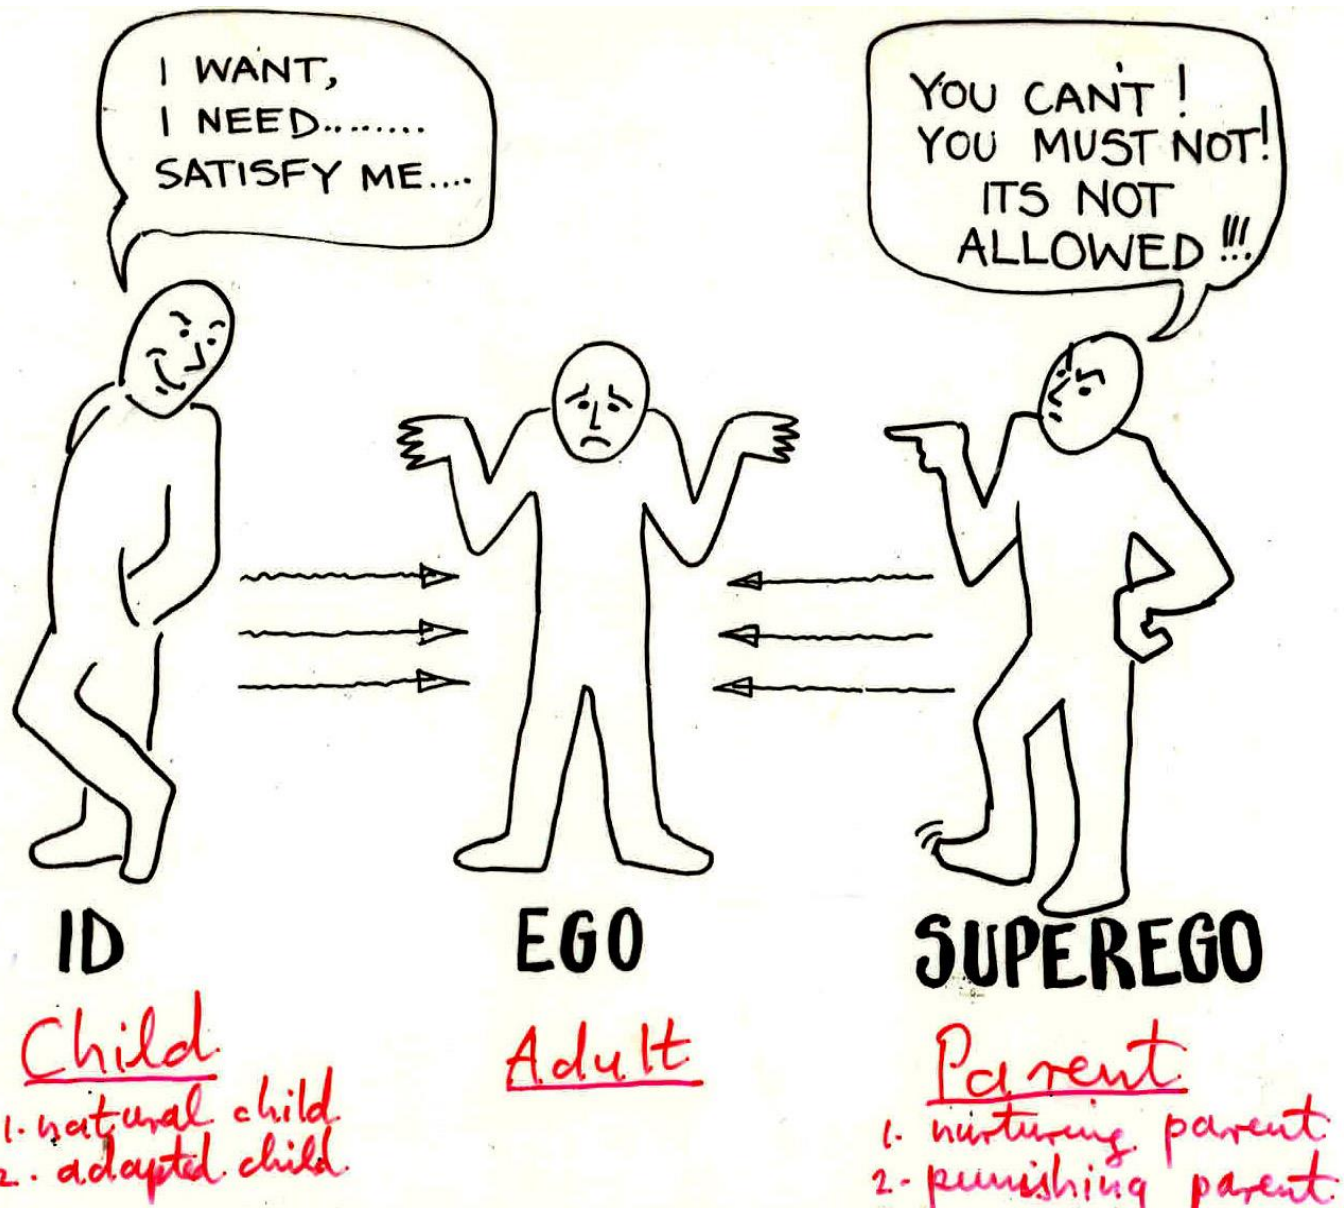 I WANT,
I NEED........
SATISFY ME....
YOU CAN'T!
YOU MUST NOT!
ITS NOT
ALLOWED!!!
ID
EGO
SUPEREGO
Child
1. natural child
2. adapted child
Adult
Parent
1. nurturing parent
2. punishing parent